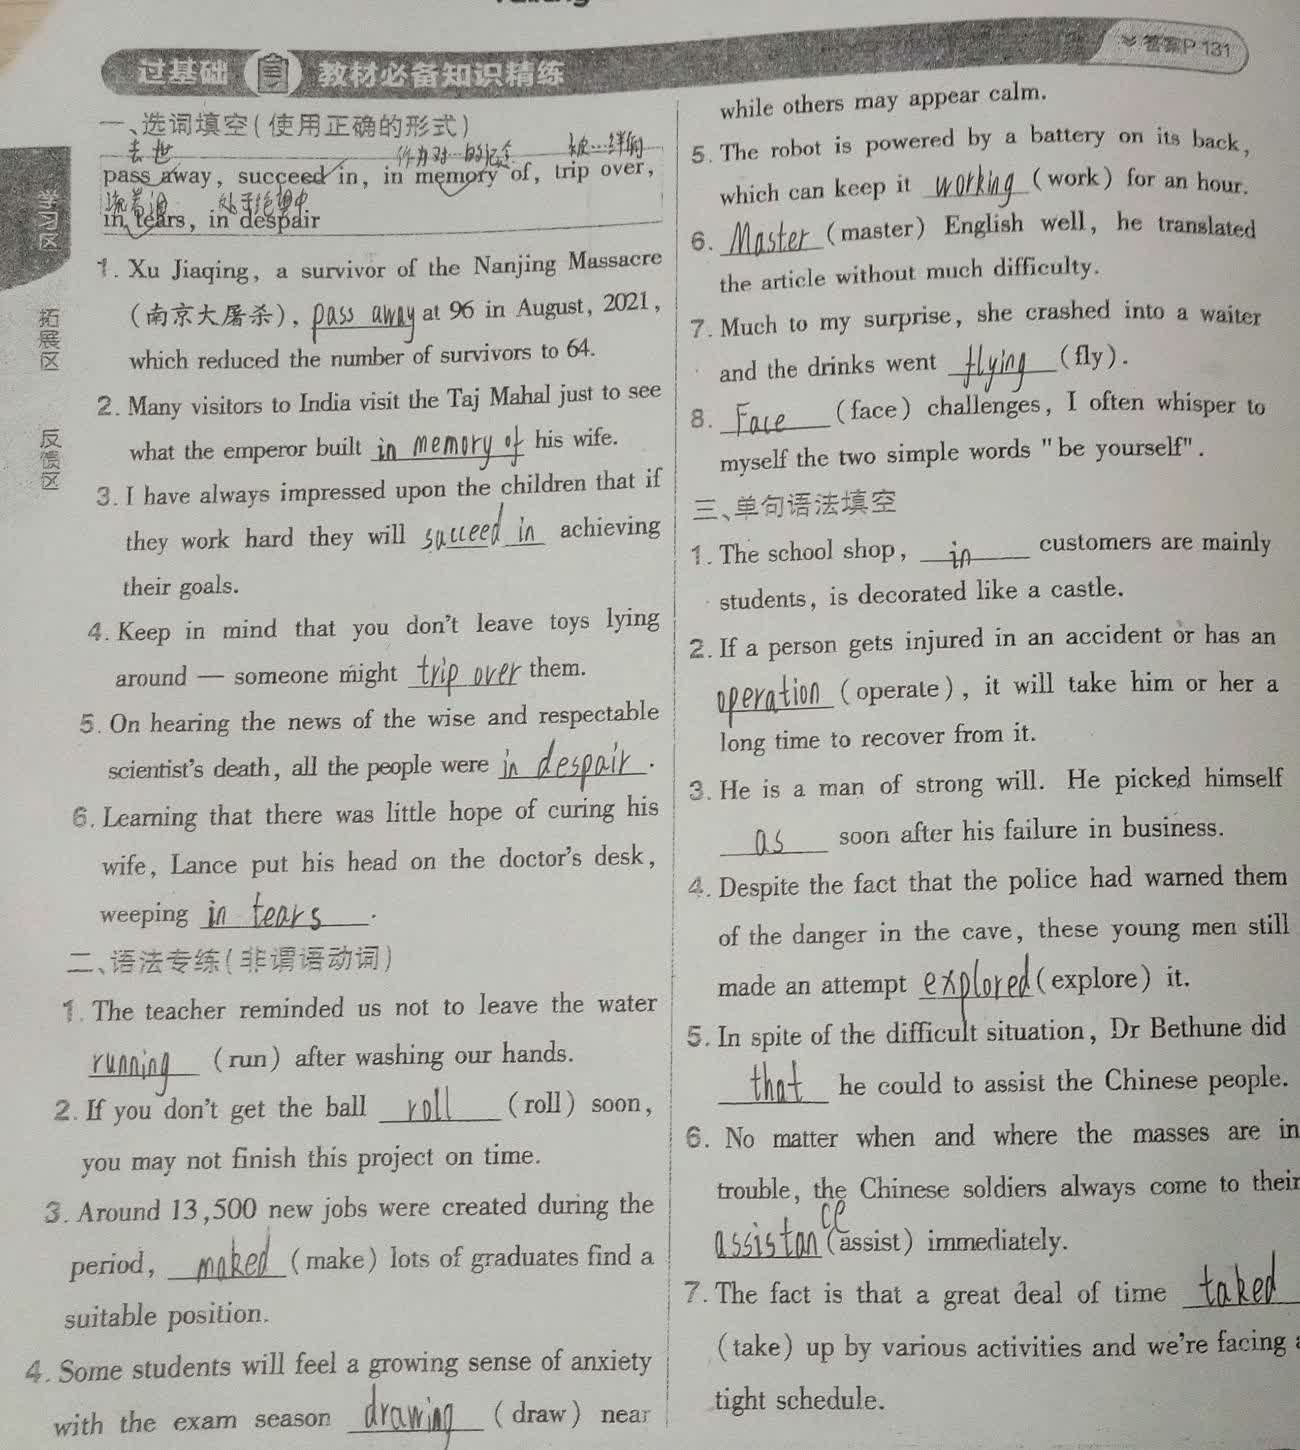 过基础 教材必备知识精练
答案P 131
学习区
拓展区
反馈区
一、选词填空(使用正确的形式)
去世 作为对…的记忆 被…绊倒
pass away, succeed in, in memory of, trip over,
流着泪 处于绝望中
in tears, in despair
1. Xu Jiaqing, a survivor of the Nanjing Massacre
(南京大屠杀), pass away at 96 in August, 2021,
which reduced the number of survivors to 64.
2. Many visitors to India visit the Taj Mahal just to see
what the emperor built in memory of his wife.
3. I have always impressed upon the children that if
they work hard they will succeed in achieving
their goals.
4. Keep in mind that you don't leave toys lying
around — someone might trip over them.
5. On hearing the news of the wise and respectable
scientist's death, all the people were in despair.
6. Learning that there was little hope of curing his
wife, Lance put his head on the doctor's desk,
weeping in tears.
二、语法专练(非谓语动词)
1. The teacher reminded us not to leave the water
running (run) after washing our hands.
2. If you don't get the ball roll (roll) soon,
you may not finish this project on time.
3. Around 13,500 new jobs were created during the
period, maked (make) lots of graduates find a
suitable position.
4. Some students will feel a growing sense of anxiety
with the exam season drawing (draw) near
while others may appear calm.
5. The robot is powered by a battery on its back,
which can keep it working (work) for an hour.
6. Master (master) English well, he translated
the article without much difficulty.
7. Much to my surprise, she crashed into a waiter
and the drinks went flying (fly).
8. Face (face) challenges, I often whisper to
myself the two simple words "be yourself".
三、单句语法填空
1. The school shop, in customers are mainly
students, is decorated like a castle.
2. If a person gets injured in an accident or has an
operation (operate), it will take him or her a
long time to recover from it.
3. He is a man of strong will. He picked himself
as soon after his failure in business.
4. Despite the fact that the police had warned them
of the danger in the cave, these young men still
made an attempt explored (explore) it.
5. In spite of the difficult situation, Dr Bethune did
that he could to assist the Chinese people.
6. No matter when and where the masses are in
trouble, the Chinese soldiers always come to their
assistance (assist) immediately.
7. The fact is that a great deal of time taked
(take) up by various activities and we're facing a
tight schedule.